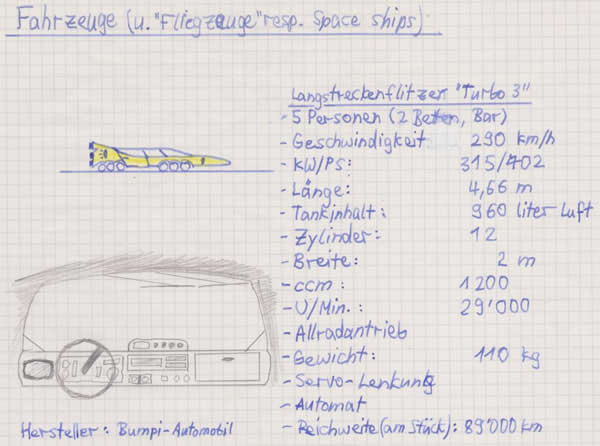 Fahrzeuge (u. "Fliegzeuge" resp. Space ships)
Langstreckenflitzer "Turbo 3"
- 5 Personen (2 Betten, Bar)
- Geschwindigkeit 290 km/h
- KW/PS: 315/402
- Länge: 4,66 m
- Tankinhalt: 960 liter Luft
- Zylinder: 12
- Breite: 2 m
- ccm: 1200
- U/Min.: 29'000
- Allradantrieb
- Gewicht: 110 kg
- Servo-Lenkung
- Automat
- Reichweite (am Stück): 89'000 km
Hersteller: Bumpi-Automobil